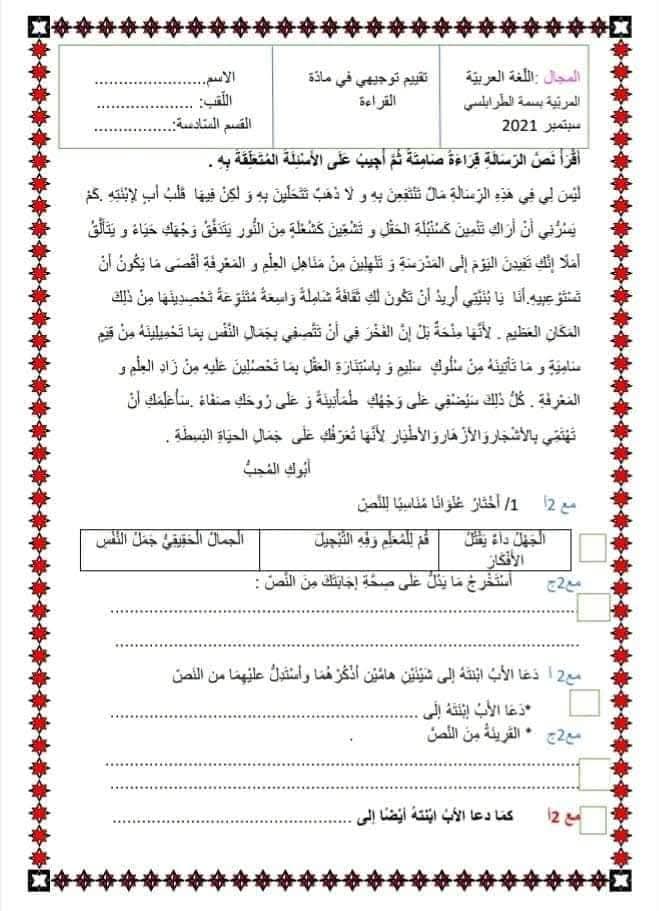 المجال :اللّغة العربيّة
المربّية بسمة الطّرابلسي
سبتمبر 2021
تقييم توجيهي في مادّة
القراءة
الاسم.......................
اللّقب: ....................
القسم السّادسة:.................
أَقْرَأُ نَصَّ الرِّسَالَةِ قِرَاءَةً صَامِتَةً ثُمَّ أُجِيبُ عَلَى الأَسْئِلَةِ المُتَعَلِّقَةِ بِهِ .
لَيْسَ لِي فِي هَذِهِ الرِّسَالَةِ مَالٌ تَنْتَفِعِينَ بِهِ و لَا ذَهَبٌ تَتَحَلَّيْنَ بِهِ وَ لَكِنْ فِيهَا قَلْبُ أَبٍ لِابْنَتِهِ .كَمْ
يَسُرُّنِي أَنْ أَرَاكِ تَنْمِينَ كَسُنْبُلَةِ الحَقْلِ و تَشُعِّينَ كَشُعْلَةٍ مِنَ النُّورِ يَتَدَفَّقُ وَجْهَكِ حَيَاءً و يَتَأَلَّقُ
أَمَلًا إِنَّكِ تَفِدِينَ اليَوْمَ إِلَى المَدْرَسَةِ وَ تَنْهَلِينَ مِنْ مَنَاهِلِ العِلْمِ و المَعْرِفَةِ أَقْصَى مَا يَكُونُ أَنْ
تَسْتَوْعِبِيهِ.أَنَا يَا بُنَيَّتِي أُرِيدُ أَنْ تَكُونَ لَكِ ثَقَافَةٌ شَامِلَةٌ وَاسِعَةٌ مُتَنَوِّعَةٌ تَحْصِدِينَهَا مِنْ ذَلِكَ
المَكَانِ العَظِيمِ . لأَنَّهَا مِنْحَةٌ بَلْ إِنَّ الفَخْرَ فِي أَنْ تَتَّصِفِي بِجَمَالِ النَّفْسِ بِمَا تَحْمِلِينَهُ مِنْ قِيَمٍ
سَامِيَةٍ و مَا تَأْتِينَهُ مِنْ سُلُوكٍ سَلِيمٍ وَ بِاسْتِنَارَةِ العَقْلِ بِمَا تَحْصُلِينَ عَلَيْهِ مِنْ زَادِ العِلْمِ و
المَعْرِفَةِ . كُلُّ ذَلِكَ سَيُضْفِي عَلَى وَجْهِكِ طُمَأْنِينَةً وَ عَلَى رُوحِكِ صَفَاءً .سَأُعَلِّمُكِ أَنْ
تَهْتَمِّي بِالأَشْجَارِوَالأَزْهَارِوَالأَطْيَارِ لأَنَّهَا تُعَرِّفُكِ عَلَى جَمَالِ الحَيَاةِ البَسِطَةِ .
أَبُوكِ المُحِبُّ
مع 2أ 1/ أَخْتَارُ عُنْوَانًا مُنَاسِبًا لِلنَّصِّ
الْجَهْلُ دَاءٌ يَقْتُلُ الأَفْكَارَ
قُمْ لِلْمُعَلِّمِ وَفِّهِ التَّبْجِيلَ
الْجمالُ الْحَقِيقِيُّ جَمَلُ النَّفْسِ
مع2ج أَسْتَخْرِجُ مَا يَدُلُّ عَلَى صِحَّةِ إِجَابَتِكَ مِنَ النَّصِّ :
..................................................
..................................................
مع2 أ دَعَا الأَبُ ابْنَتَهُ إِلى شَيْئَيْنِ هامَّيْنِ أَذْكُرْهُمَا وأَسْتَدِلُّ عليْهِمَا من النَصّ
*دَعَا الأَبُ اِبْنَتَهُ إِلَى ..................................................
مع2ج * القَرِينَةُ مِنَ النَّصِّ .
..................................................
..................................................
مع 2أ كمَا دعا الأبُ ابْنتهُ أيْضًا إلى ........................................